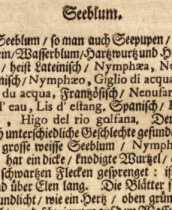 Seeblum.
Seeblum / so man auch Seepupen /
em / Wasserblum / Hartzwurtz und H
/ heist Lateinisch / Nymphæa, Ne
inisch / Nymphæo, Giglio di acqua
di acqua, Frantzösisch / Nenufar
d' eau, Lis d' estang, Spanisch /
, Higo del rio golfana. Der
unterschiedliche Geschlechte gefund
grosse weisse Seeblum / Nymph
hat ein dicke / knodige Wurtzel /
schwartzen Flecken gesprengt : ist
über Elen lang. Die Blätter s
undlicht / wie ein Hertz / oben grün